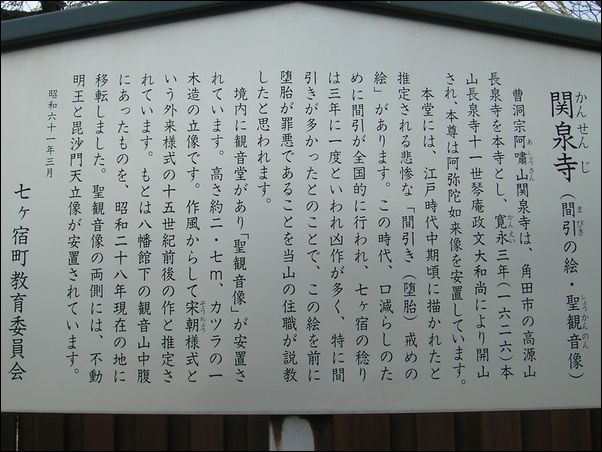 関泉寺（間引の絵・聖観音像）
かんせんじ
まびき
しょうかんのん
曹洞宗阿嘯山関泉寺は、角田市の高源山
あしょうさん
長泉寺を本寺とし、寛永三年（一六二六）本
かんえい
山長泉寺十一世琴庵政文大和尚により開山
され、本尊は阿弥陀如来像を安置しています。
本堂には、江戸時代中期頃に描かれたと
推定される悲惨な「間引き（堕胎）戒めの
絵」があります。この時代、口減らしのた
めに間引が全国的に行われ、七ヶ宿の稔り
は三年に一度といわれ凶作が多く、特に間
引きが多かったとのことで、この絵を前に
堕胎が罪悪であることを当山の住職が説教
したと思われます。
境内に観音堂があり「聖観音像」が安置さ
れています。高さ約二・七m、カツラの一
木造の立像です。作風からして宋朝様式と
そうちょう
いう外来様式の十五世紀前後の作と推定さ
れています。もとは八幡館下の観音山中腹
にあったものを、昭和二十八年現在の地に
移転しました。聖観音像の両側には、不動
明王と毘沙門天立像が安置されています。
昭和六十一年三月
七ヶ宿町教育委員会